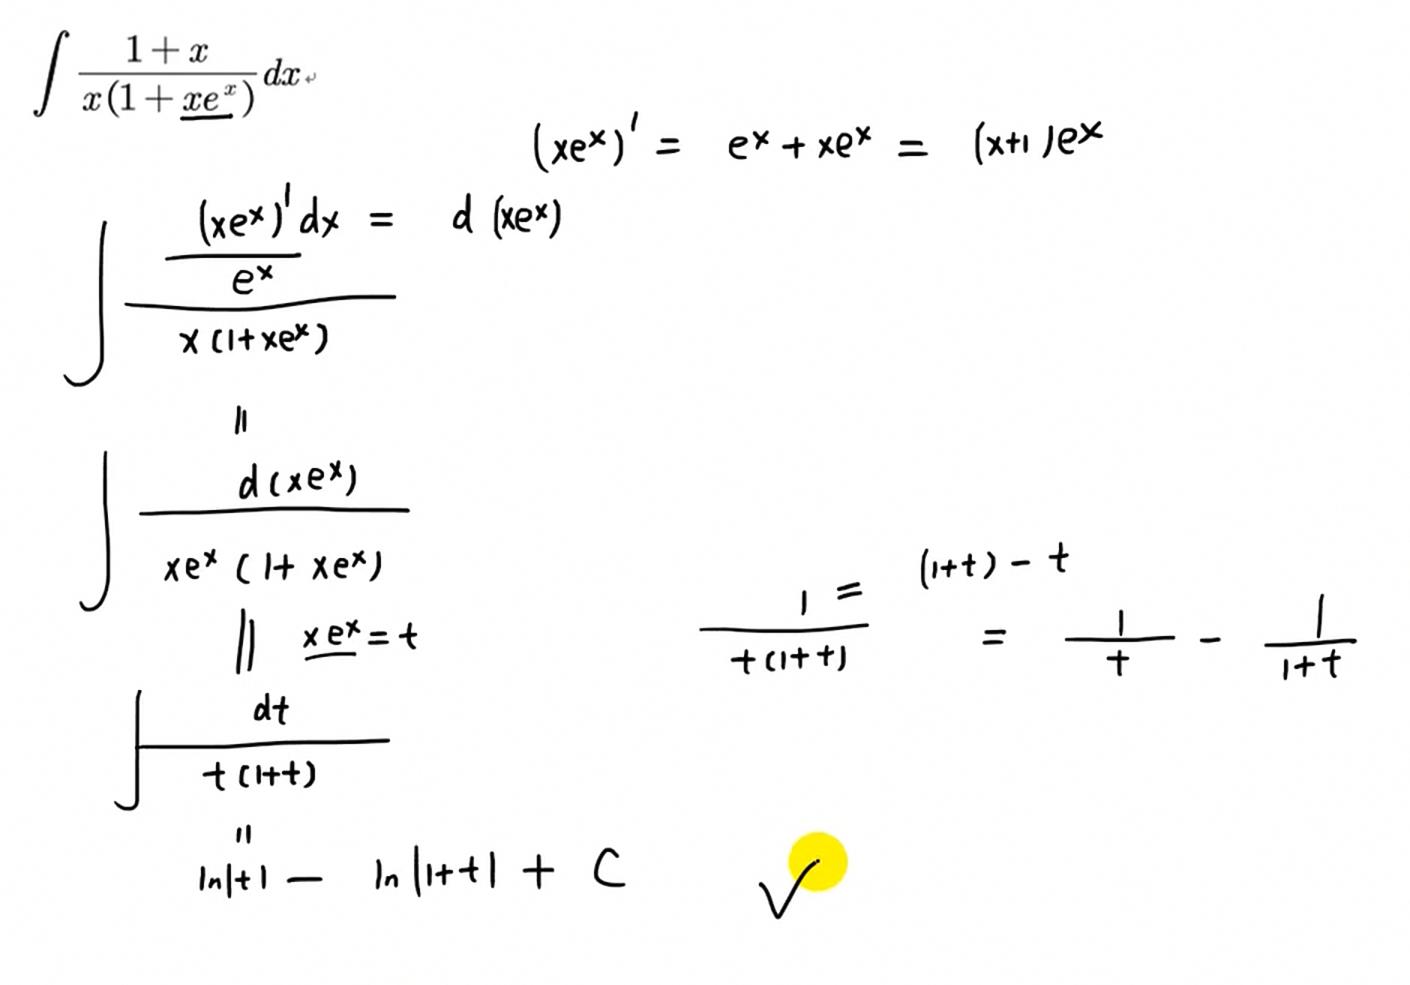 ∫ (1+x)/(x(1+xe^x)) dx
(xe^x)' = e^x + xe^x = (x+1)e^x
∫ ((xe^x)' dx / e^x)/(x(1+xe^x)) = d(xe^x)
||
∫ d(xe^x)/(xe^x(1+xe^x))
|| xe^x = t
1/(t(1+t)) = (1+t) - t = 1/t - 1/(1+t)
∫ dt/(t(1+t))
||
ln|t| - ln|1+t| + C ✓